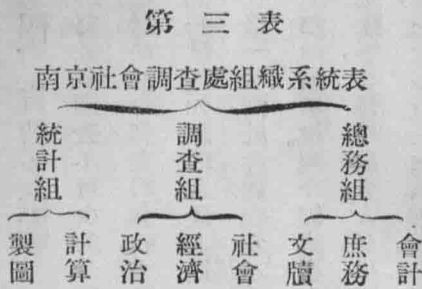 第三表
南京社會調查處組織系統表
總務組
調查組
統計組
會計
庶務
文牘
社會
經濟
政治
計算
製圖